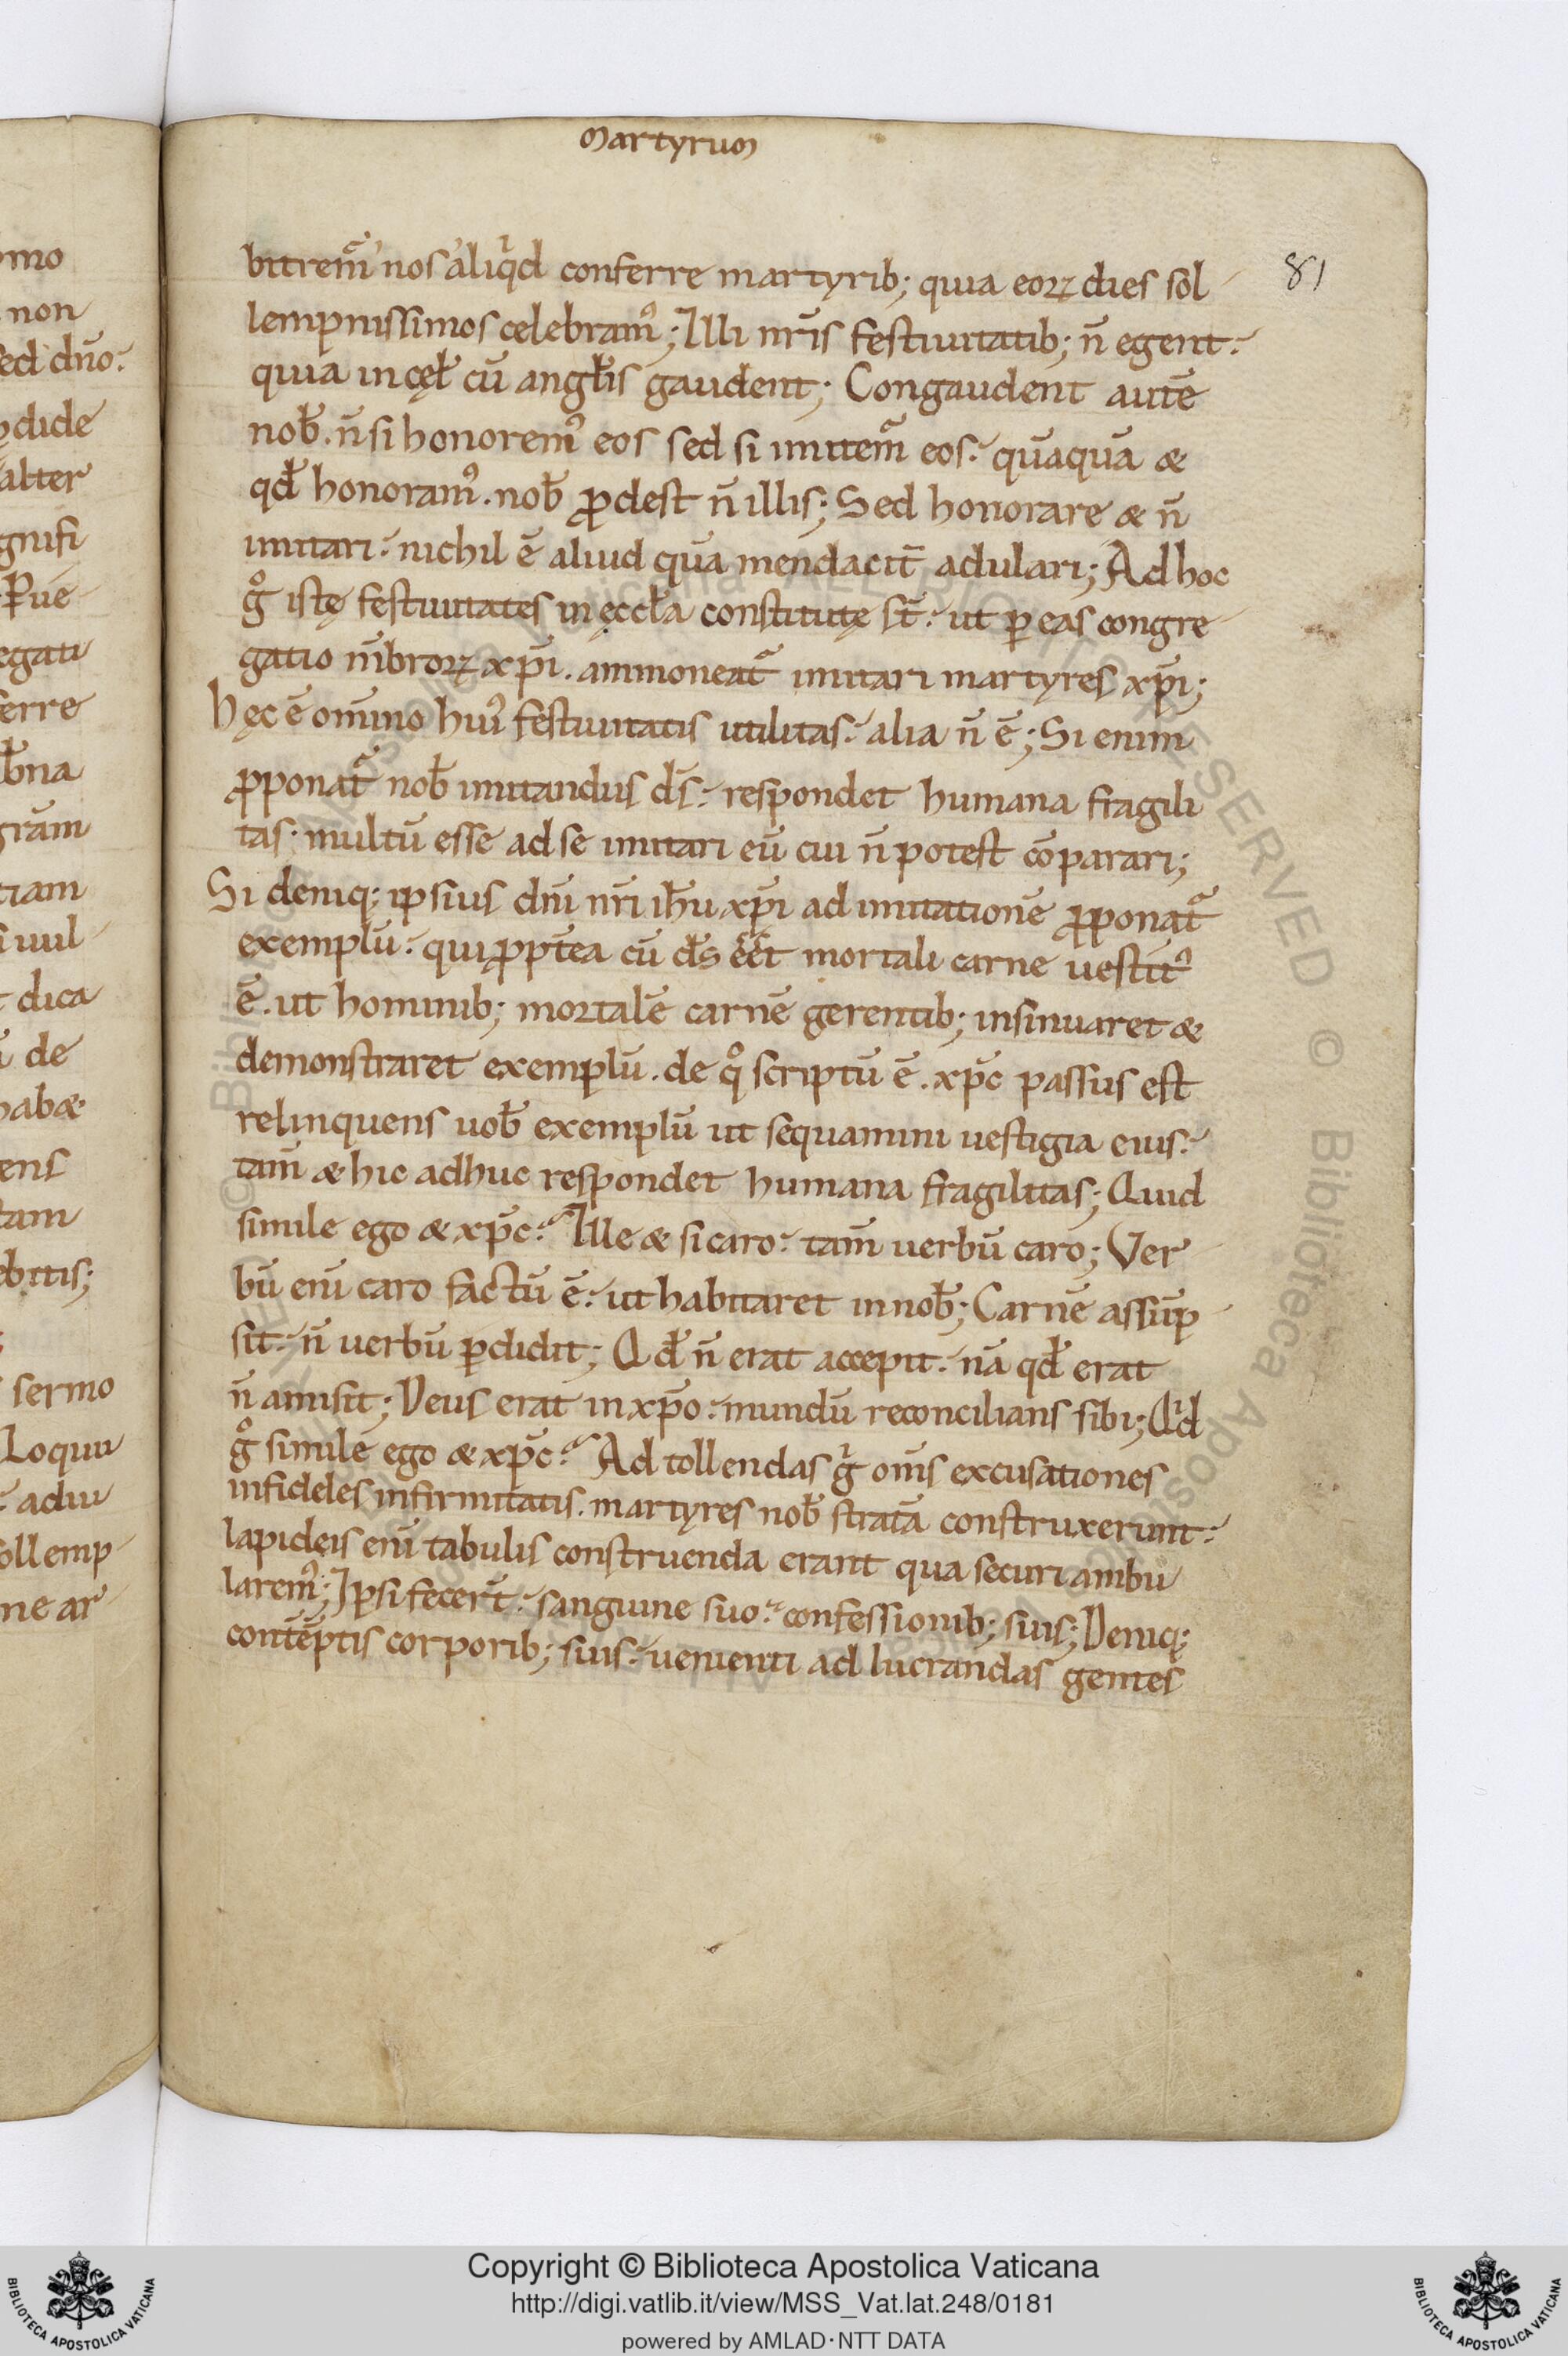 Martyrum
81
bitrem̃ nos aliqͥd conferre martyrib; quia eoꝝ dies sol
lempnissimos celebramꝰ; Illi nr̃is festiuitatib; n̄ egent.
quia in cęl̃ cū angl̃is gaudent; Congaudent autē
nob̃. n̄ si honoremꝰ eos sed si imitem̃ eos. quāquā &
qd̃ honoramꝰ. nob̃ ꝓdest n̄ illis; Sed honorare & n̄
imitari. nichil ē aliud quā mendacit̃ adulari; Ad hoc
gͦ istę festiuitates in ęccl̃a constitutę st̃. ut ꝑ eas congre
gatio m̃broꝝ xp̃i. ammoneat̃ imitari martyres xp̃i;
Hęc ē om̃ino huiꝰ festiuitatis utilitas. alia n̄ ē; Si enim
ꝓponat̃ nob̃ imitandus ds̃. respondet humana fragili
tas. multū esse ad se imitari eū cui n̄ potest cōparari;
Si deniq; ipsius dñi nr̃i ih̃u xp̃i ad imitationē ꝓponat̃
exemplū. qui ꝓpt̃ea cū d̃s ẽẽt mortali carne uestitꝰ
ē. ut hominib; mortalē carnē gerentib; insinuaret &
demonstraret exemplū. de qͦ scriptū ē. xp̃c passus est
relinquens uob̃ exemplū ut sequamini uestigia eius.
tam̃ & hic adhuc respondet humana fragilitas; Quid
simile ego & xp̃c. Ille & si caro. tam̃ uerbū caro; Ver
bū eni̅ caro factū ē. ut habitaret in nob̃; Carnē assūp
sit. n̄ uerbū ꝑdidit; Qd̃ n̄ erat accepit. nā qd̃ erat
n̄ amisit; Deus erat in xp̃o. mundū reconcilians sibi; Qͥd
gͦ simile ego & xp̃c. Ad tollendas gͥ om̃s excusationes
infideles infirmitatis. martyres nob̃ stratā construxerunt.
lapideis eni̅ tabulis construenda erant qua securi ambu
laremꝰ; Ipsi fecer̃t. sanguine suo. confessionib; suis; Deniq;
contēptis corporib; suis. uenienti ad lucrandas gentes
mo
non
sed dño.
dide
alter
gnifi
Pue
egati
ferre
b̃na
grām
tiam
uul
dica
de
hab&
ens
tam
ebitis;
sermo
Loqui
adiu
ollemp
ne ar
Copyright © Biblioteca Apostolica Vaticana
http://digi.vatlib.it/view/MSS_Vat.lat.248/0181
powered by AMLAD·NTT DATA
BIBLIOTECA APOSTOLICA VATICANA
BIBLIOTECA APOSTOLICA VATICANA